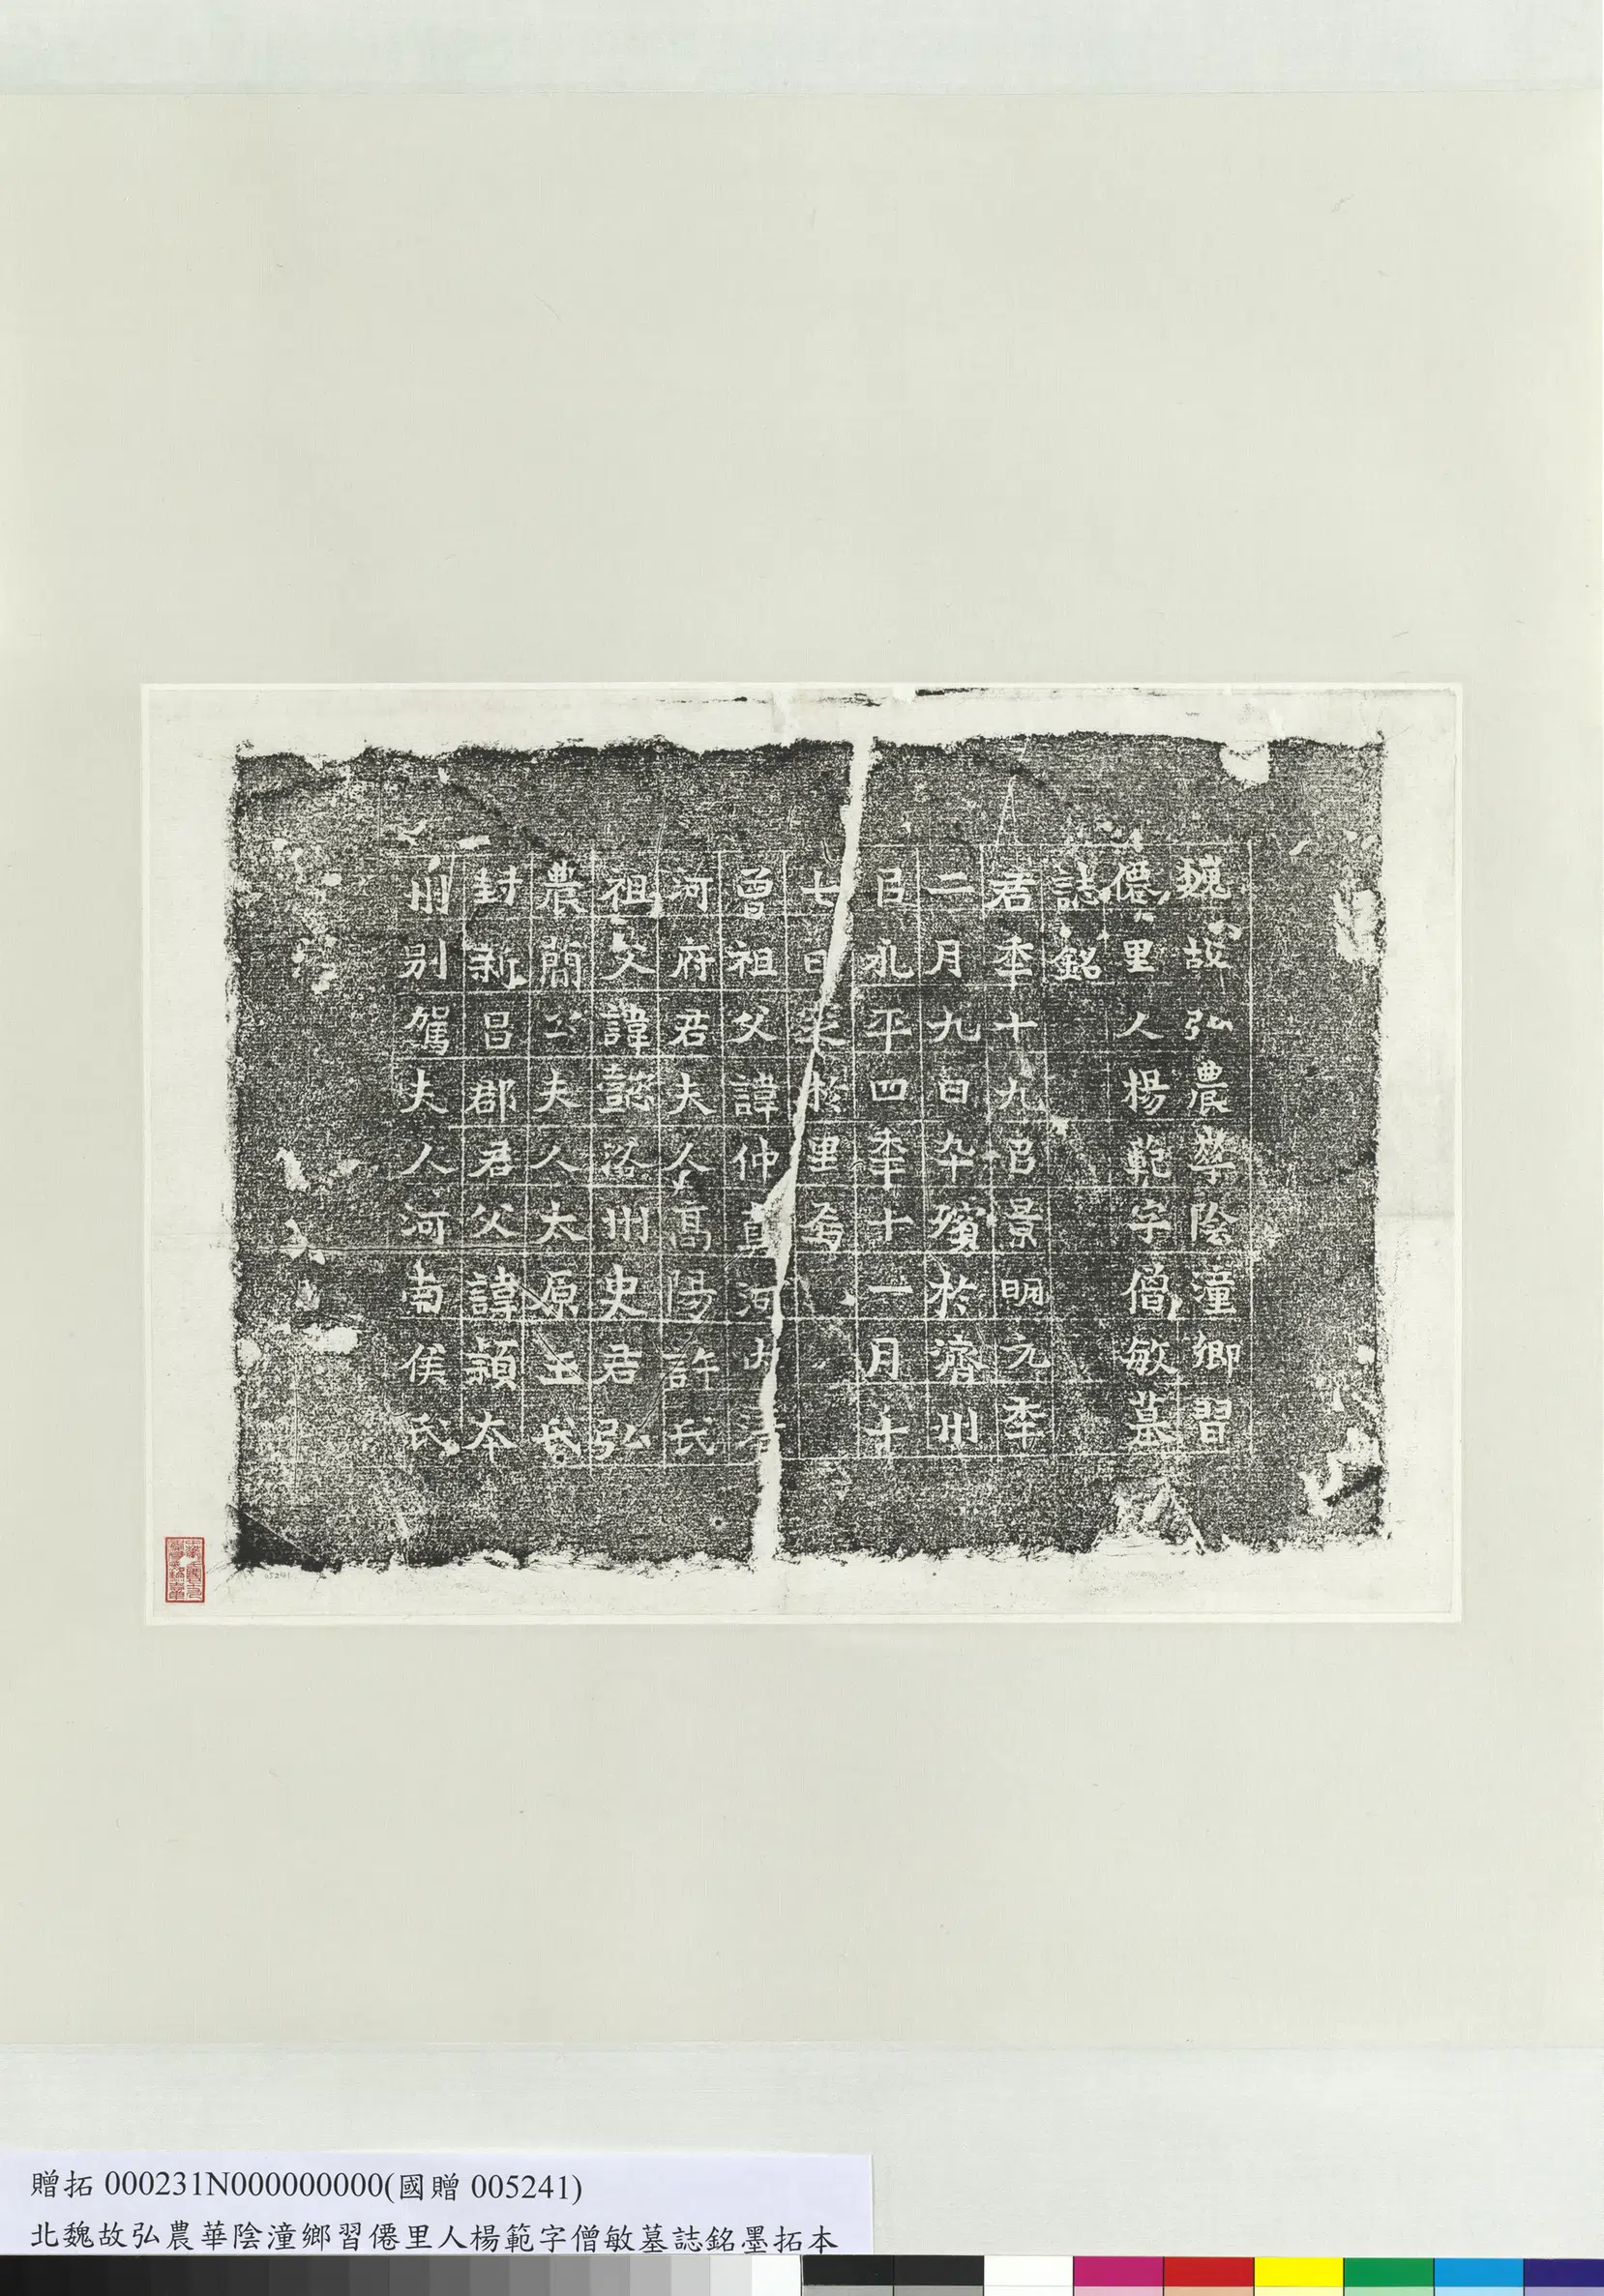 魏故弘農華陰潼鄉習
僊里人楊範字僧敏墓
誌銘
君秊十九㠯景明元秊
二月九日卆殯於濟州
㠯永平四秊十一月十
七日窆於里焉
曾祖父諱仲真河內清
河府君夫人高陽許氏
祖父諱懿洛州史君弘
農簡公夫人太原王氏
封新昌郡君父諱穎本
州別駕夫人河南侯氏
贈拓 000231N000000000(國贈 005241)
北魏故弘農華陰潼鄉習僊里人楊範字僧敏墓誌銘墨拓本